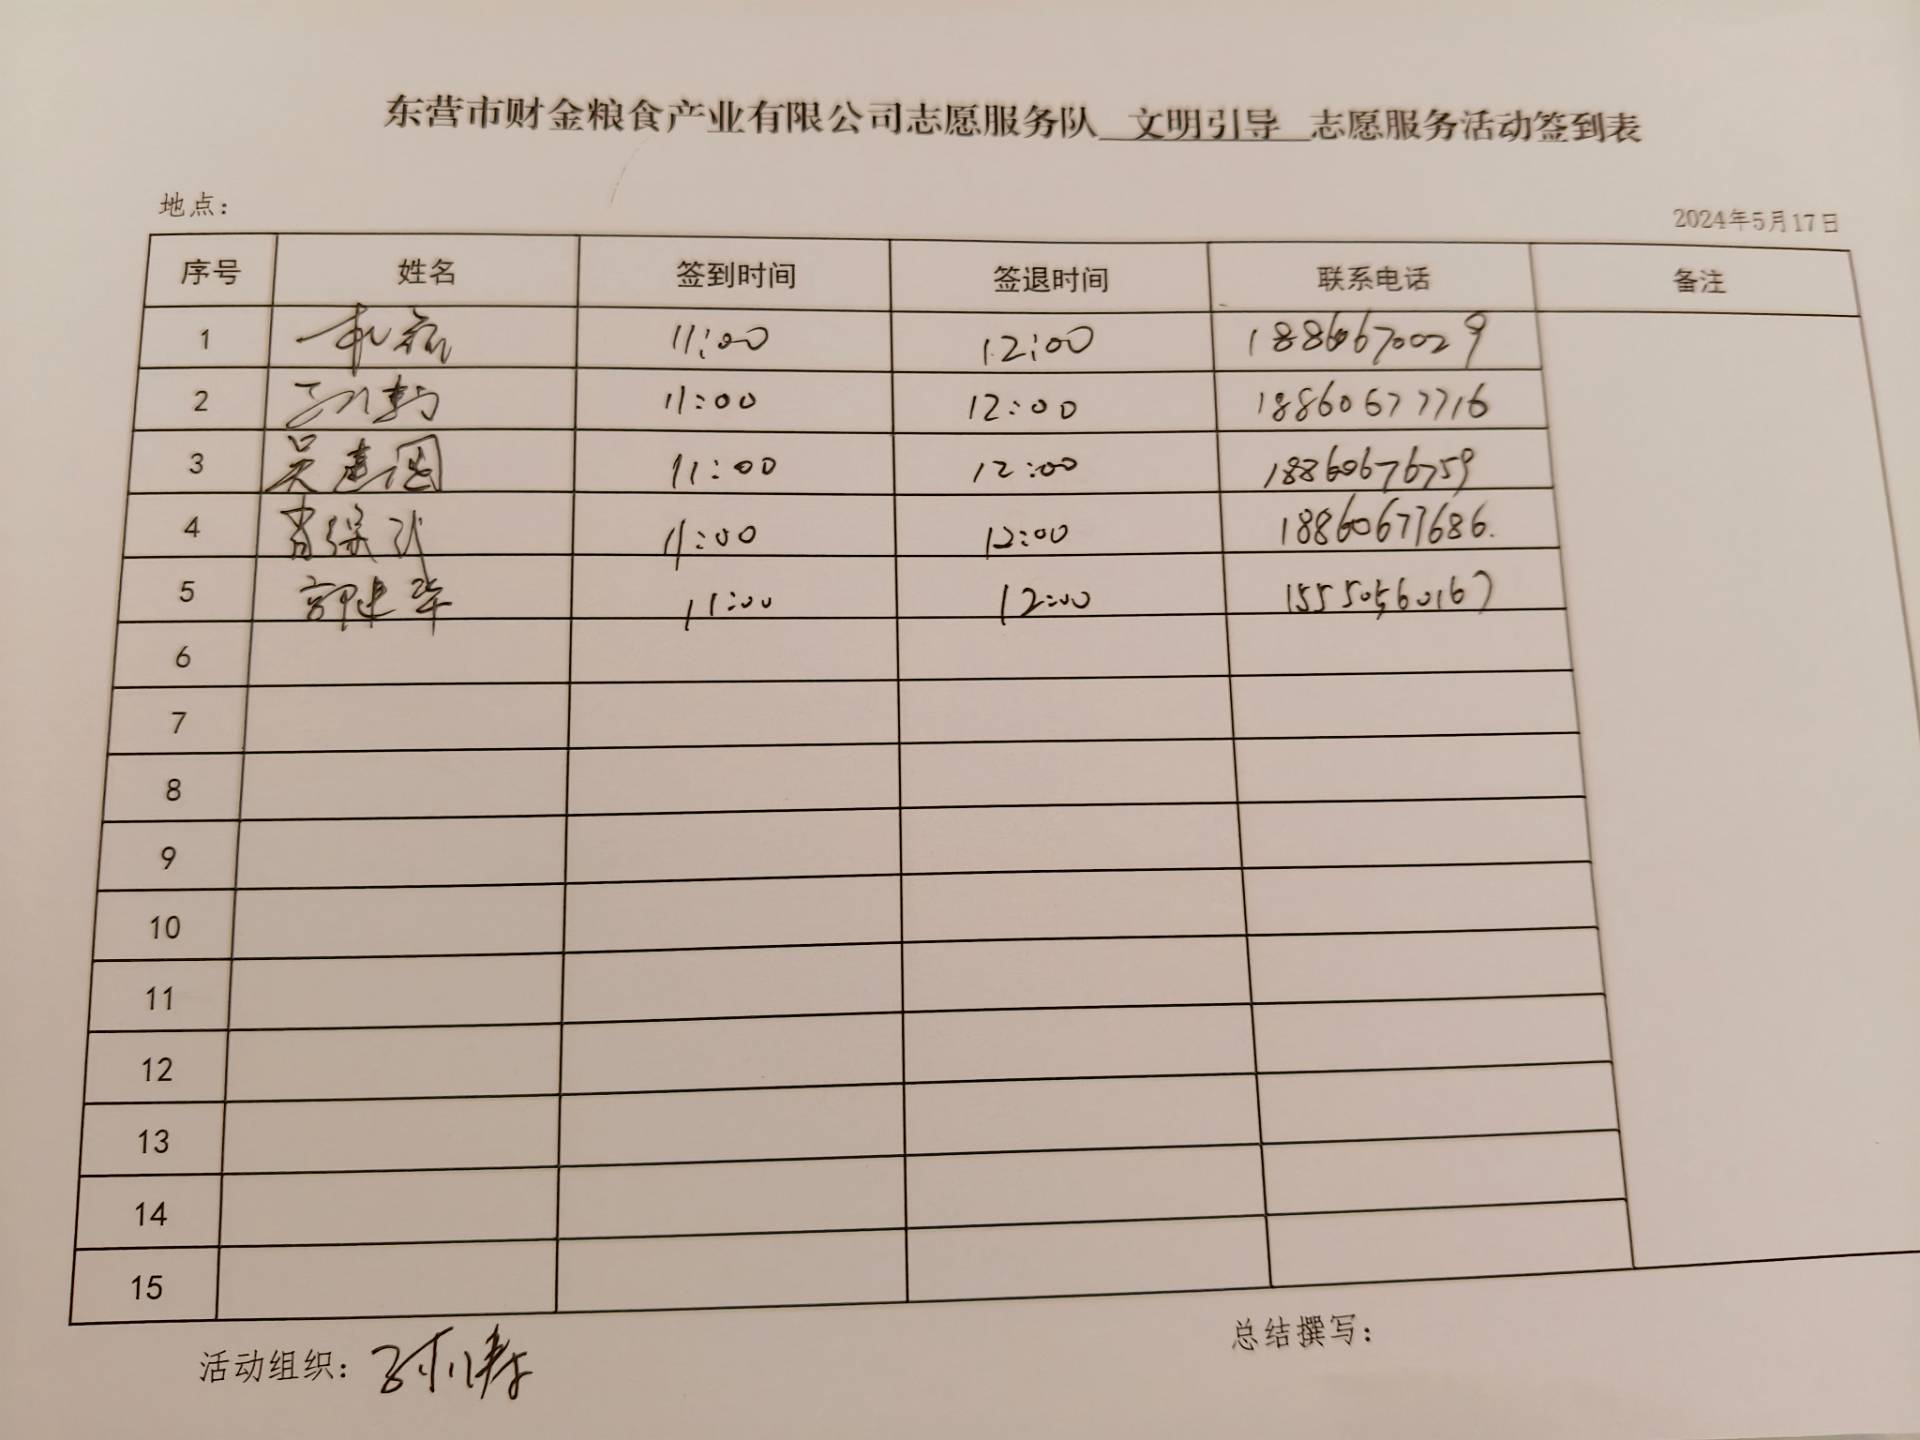 东营市财金粮食产业有限公司志愿服务队 文明引导 志愿服务活动签到表
地点：
2024年5月17日
序号 姓名 签到时间 签退时间 联系电话 备注
1 11:00 12:00 18860670029
2 11:00 12:00 18860677716
3 吴建国 11:00 12:00 18860676759
4 11:00 12:00 18860677686.
5 郭建华 11:00 12:00 15550560167
6
7
8
9
10
11
12
13
14
15
活动组织：
总结撰写：